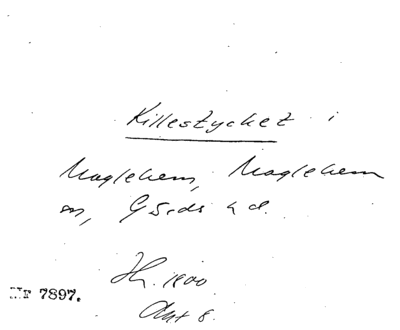 Killestycket i
Maglehem, Maglehem
sn, Gärds hd.
Hz. 1800
Akt 8.
Nr 7897.